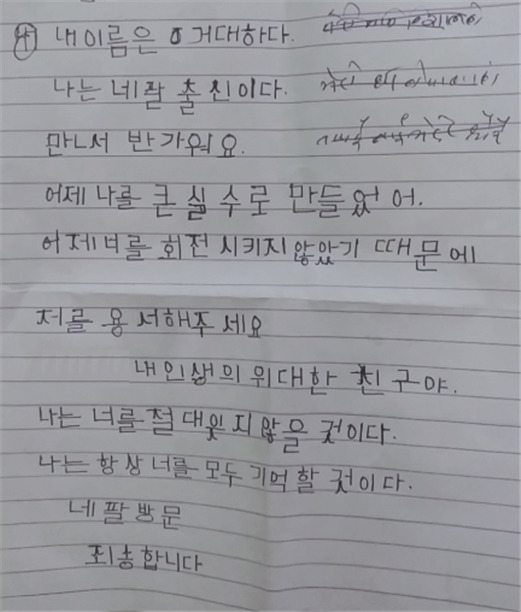 ④ 내 이름은 이 거대하다.
나는 네팔 출신이다.
만나서 반가워요.
어제 나를 큰 실수로 만들었어.
어제 너를 회전시키지 않았기 때문에
저를 용서해주세요
내 인생의 위대한 친구야.
나는 너를 절대 잊지 않을 것이다.
나는 항상 너를 모두 기억할 것이다.
네팔 방문
죄송합니다